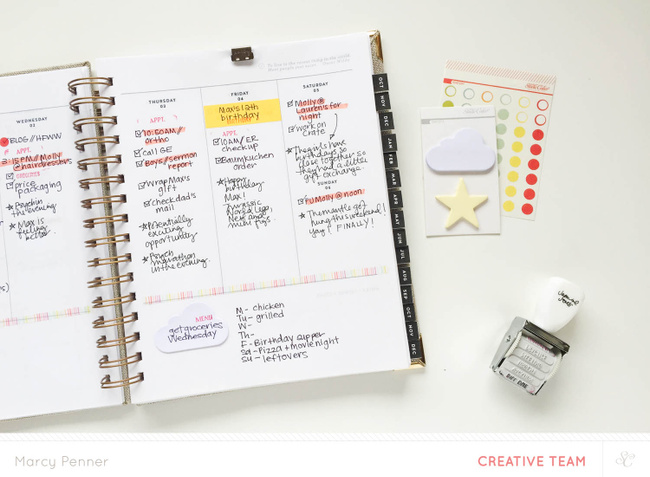 WEDNESDAY
02
BLOG//HFWW
APPT.
15PM//Molly
@hairdressers
price
packaging
in the evening
★Max is
feeling
THURSDAY
03
APPT.
10:50AM/
ortho
call GE
Boys//sermon
report
Wrap Max's
gift
check dad's
mail
★Potentially
exciting
opportunity
★Psych
migration
in the evening.
FRIDAY
04
Max's 12th
birthday
APPT.
10AM/ER
checkup
Baumkuchen
order
★Happy
birthday
Max!
Jurassic
World Lego,
Nerf and
mini figs
SATURDAY
05
Molly@
Lauren's for
night
work on
crate
★The girls have
birthdays so
close together so
they had a little
gift exchange.
SUNDAY
06
PU Molly @ noon!
★The mantle got
hung this weekend!
Yay! FINALLY!
MENU
get groceries
Wednesday
M- chicken
Tu- grilled
W-
Th-
F- Birthday supper
Sa- Pizza + movie night
Su- leftovers
OCT
NOV
DEC
JAN
FEB
MAR
APR
MAY
JUN
JUL
AUG
SEP
OCT
NOV
DEC
DUE DATE
Marcy Penner
CREATIVE TEAM
SC